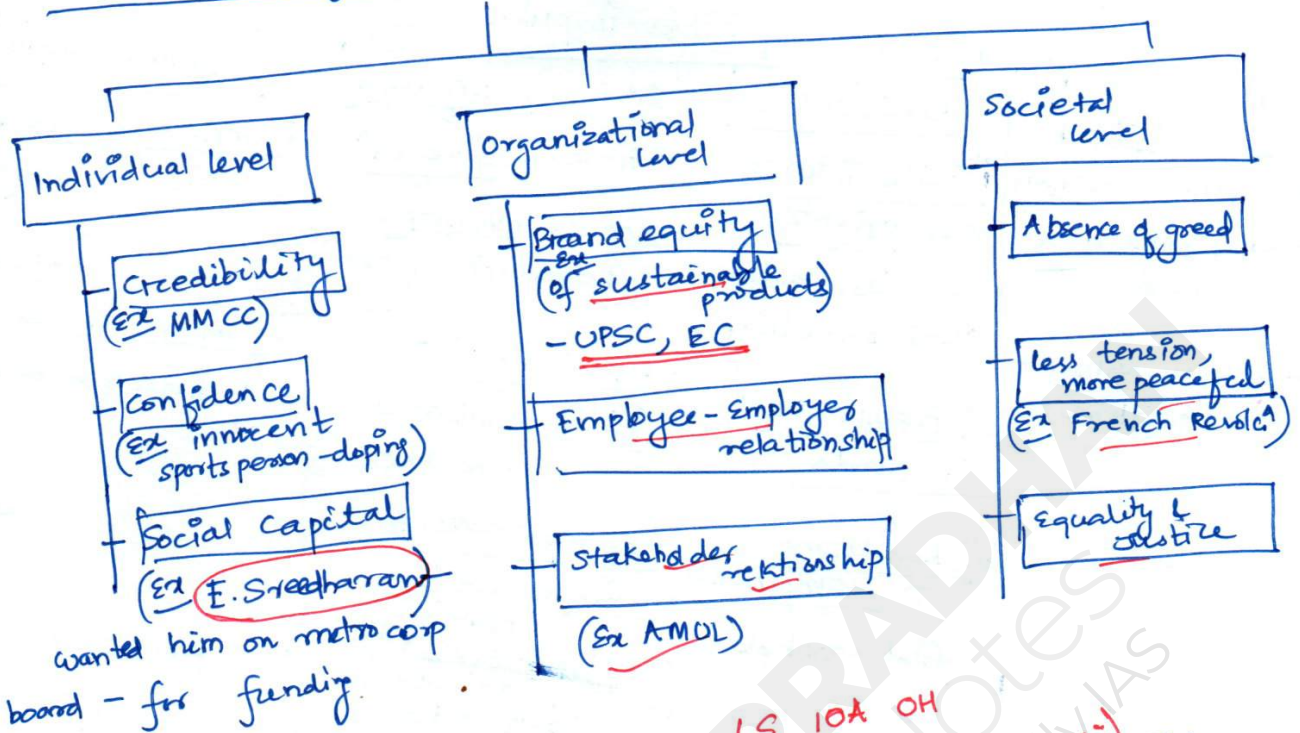 Individual level
Credibility
(Ex MMCC)
Confidence
(Ex innocent
sports person - doping)
Social Capital
(Ex E. Sreedharan)
wanted him on metro corp
board - for funding.
Organizational
level
Brand equity
Ex
(of sustainable
products)
- UPSC, EC
Employee - Employer
relationship
Stakeholder
relationship
(Ex AMOL)
Societal
level
Absence of greed
less tension,
more peaceful
(Ex French
Equality &
Justice
10A OH
PRADHAN
Notes
IAS